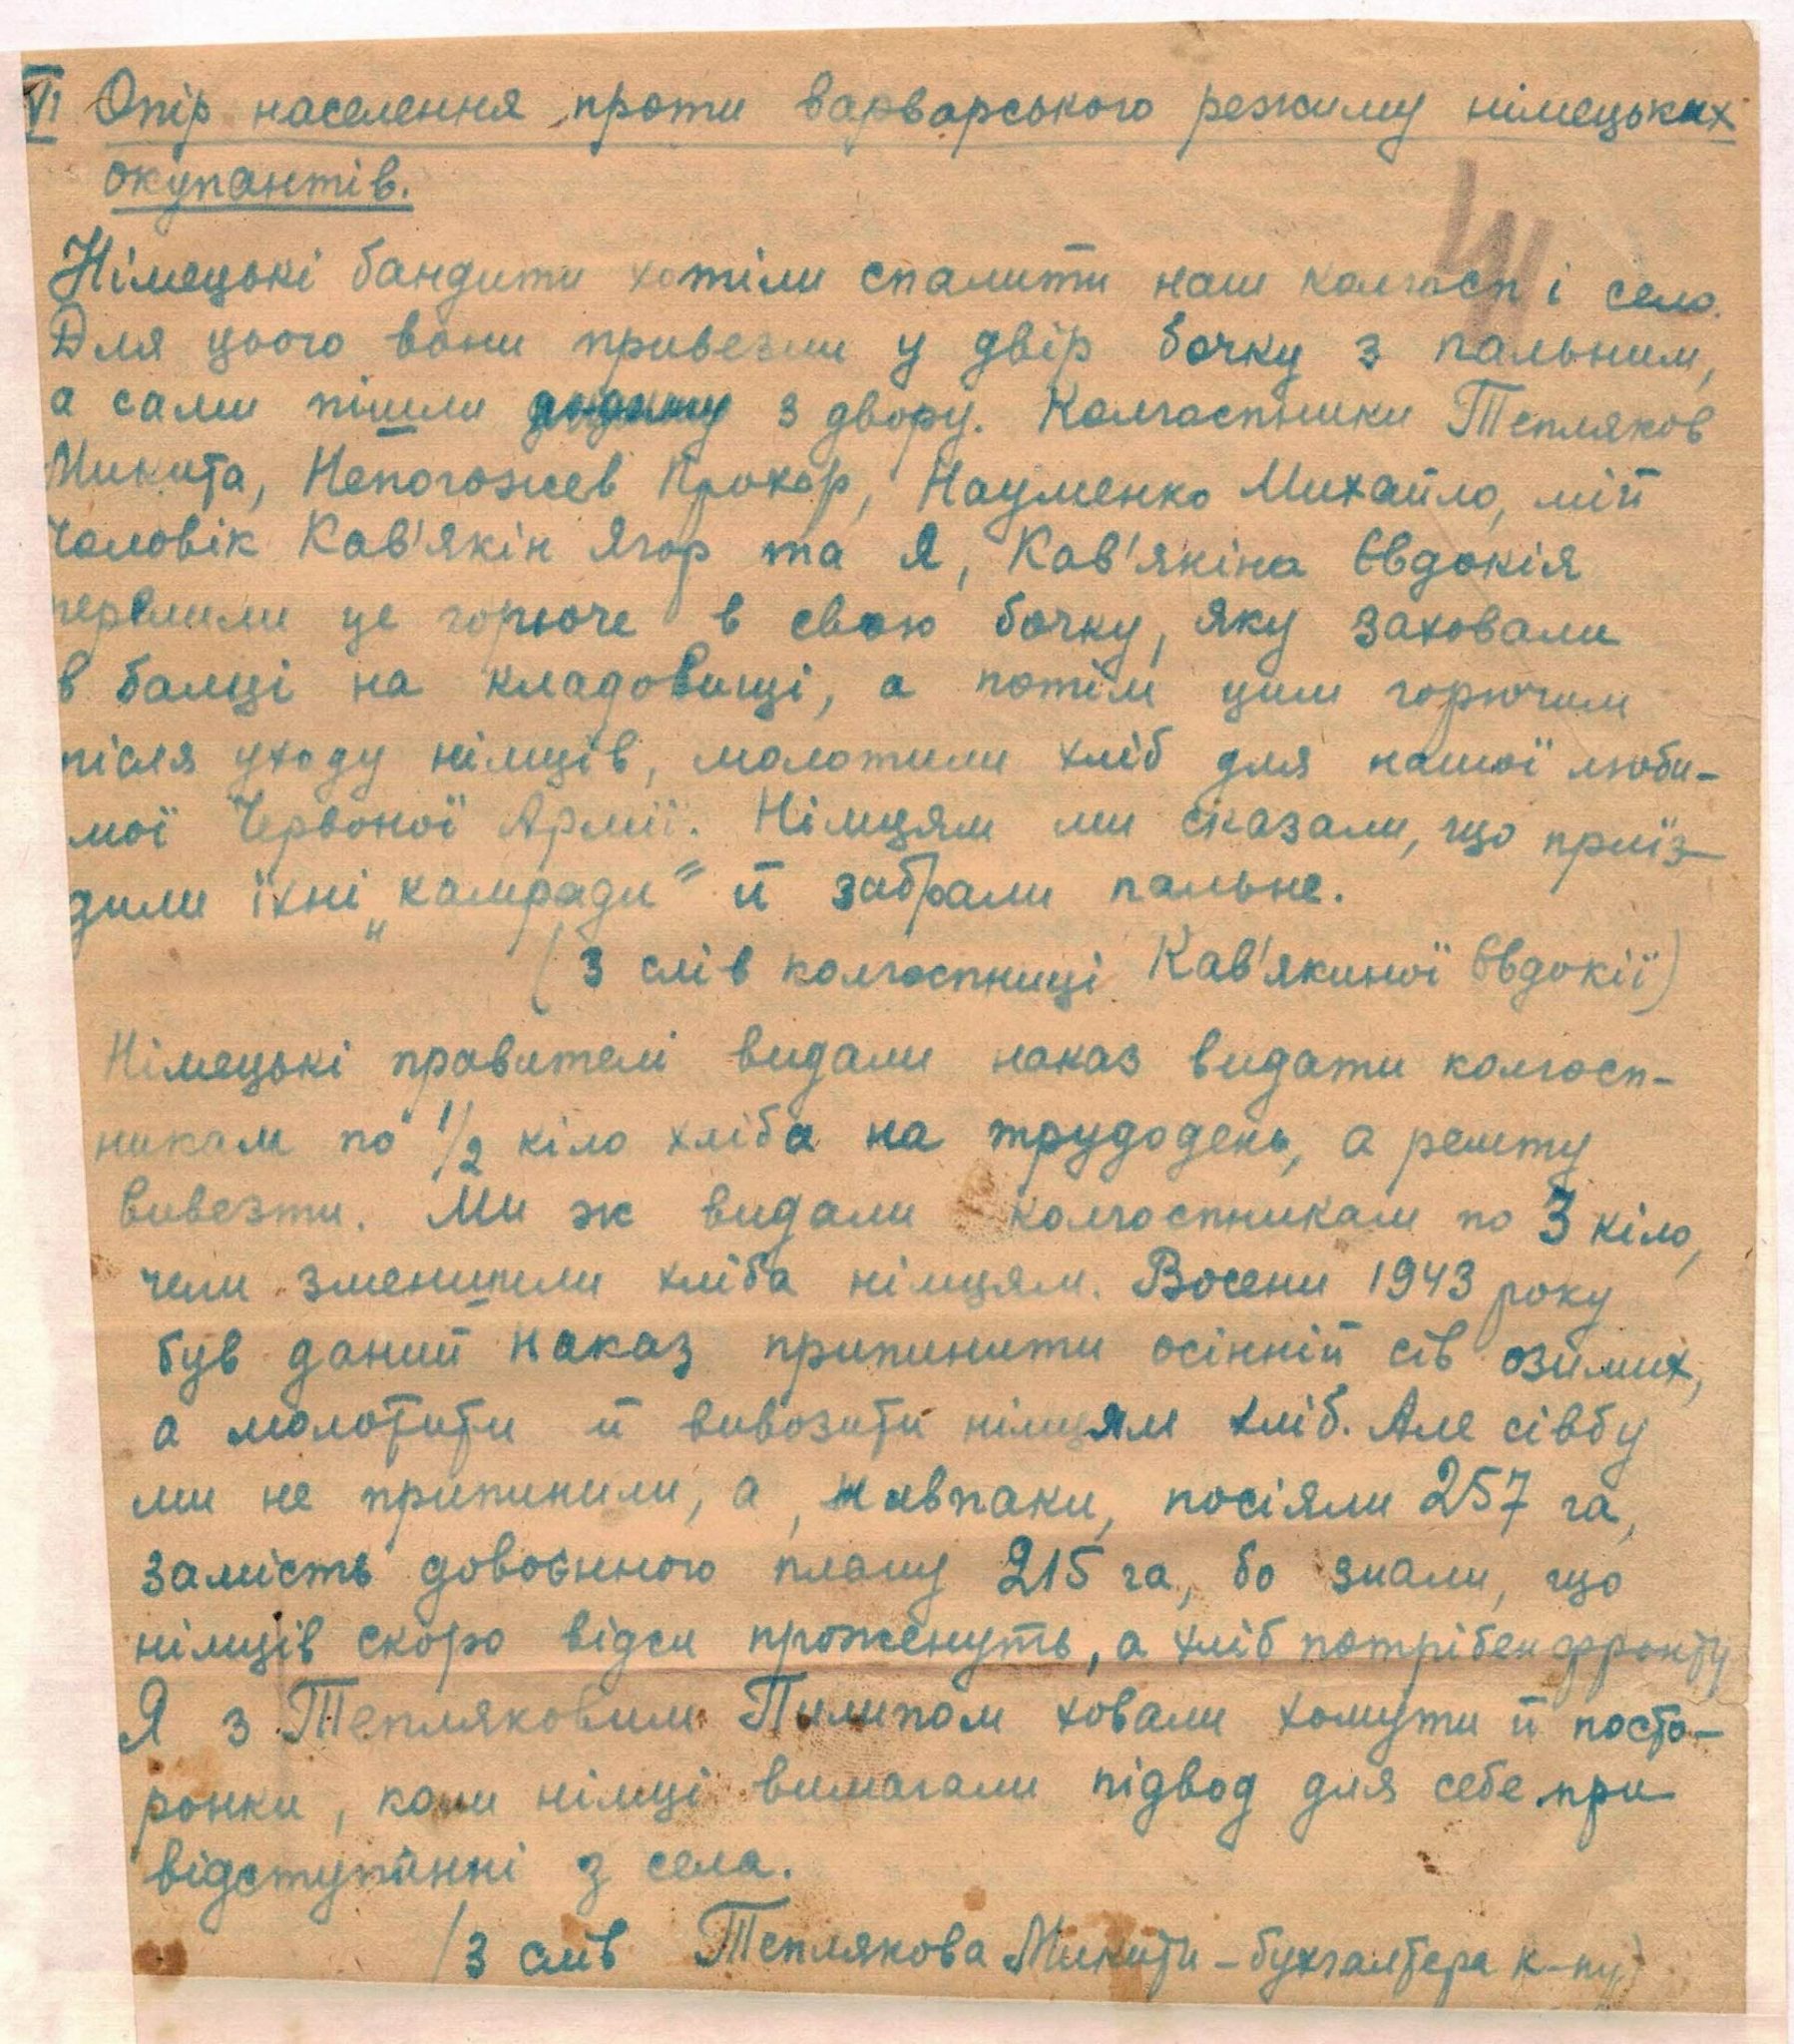 VI Опір населення проти варварського режиму німецьких
окупантів.
Німецькі бандити хотіли спалити наш колгосп і село.
Для цього вони привезли у двір бочку з пальним,
а сами пішли з двору. Колгоспники Тепляков
Микита, Непогожев Прохор, Науменко Михайло, мій
чоловік Кав'якін Ягор та я, Кав'якіна Євдокія
перелили це горюче в свою бочку, яку заховали
в балці на кладовищі, а потім цим горючим
після уходу німців, молотили хліб для нашої люби-
мої Червоної Армії. Німцям ми сказали, що приїз-
дили їхні „камради" й забрали пальне.
(З слів колгоспниці Кав'якиної Євдокії)
Німецькі правителі видали наказ видати колгосп-
никам по 1/2 кіло хліба на трудодень, а решту
вивезти. Ми ж видали колгоспникам по 3 кіло,
чим зменшили хліба німцям. Восени 1943 року
був даний наказ припинити осінній сів озимих,
а молотити й вивозити німцям хліб. Але сівбу
ми не припинили, а, навпаки, посіяли 257 га,
замість довоєнного плану 215 га, бо знали, що
німців скоро відси проженуть, а хліб потрібен фронту
Я з Тепляковим Пилипом ховали хомути й посто-
ронки, коли німці вимагали підвод для себе при
відступанні з села.
(З слів Теплякова Микити - бухгалтера к-пу)